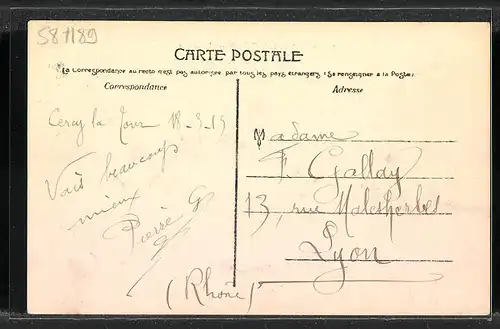 581189
CARTE POSTALE
La Correspondance au recto n'est pas autorisée par tous les pays étrangers (Se renseigner à la Poste)
Correspondance
Adresse
Cercy la Tour 18-3-15
Vais beaucoup
mieux
Pierre G
Madame
F. Gallay
13, rue Malesherbes
Lyon
(Rhône)